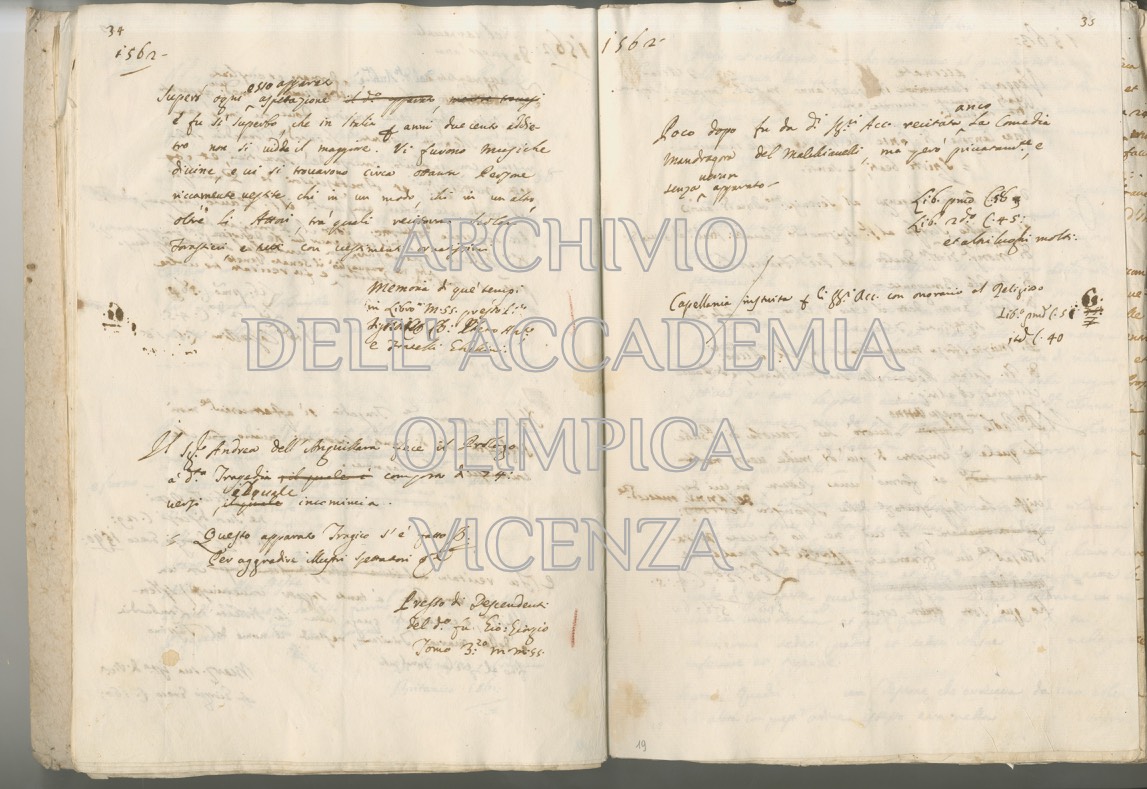 34
1562-
esso apparato
Superò ogni aspetazione il d.o apparato,
è fu sì superbo, che in Italia p anni duecento addie-
tro non si vidde il maggiore. Vi furono Musiche
divine, e vi si trovarono circa ottanta Persone
riccamente vestite, chi in un modo, chi in un altro,
oltre li Attori, tra quali recitarono
forastieri e tutti con vestimenti
Memoria di que' tempi
in Libro M.SS. presso li
e Fratelli
Il Sig.r Andrea dell'Anguillara fece il Prologo
a d.ta Tragedia il quale è composto di 74:
del quale
versi, il quale incomincia.
Questo apparato Tragico s'è fatto
Per aggradire Illustri spettatori
Presso de Descendenti
del d.o fù Gio: Giorgio
Tomo 3.zo m.m.ss.
1562-
35
anco
Poco dopo fu da d.i SS.ri Acc. recitata La Comedia
Mandragora del Malchiavelli, ma però privatam.te, e
verun
senza apparato-
Lib.o pmo C. 56
Lib.o 2do C. 45:
et altri luoghi molti:
Capellania instituita p li SS.ri Acc. con onorario al Religioso
Lib.o pmo C. 51
C. 40
19
ARCHIVIO
DELL'ACCADEMIA
OLIMPICA
VICENZA